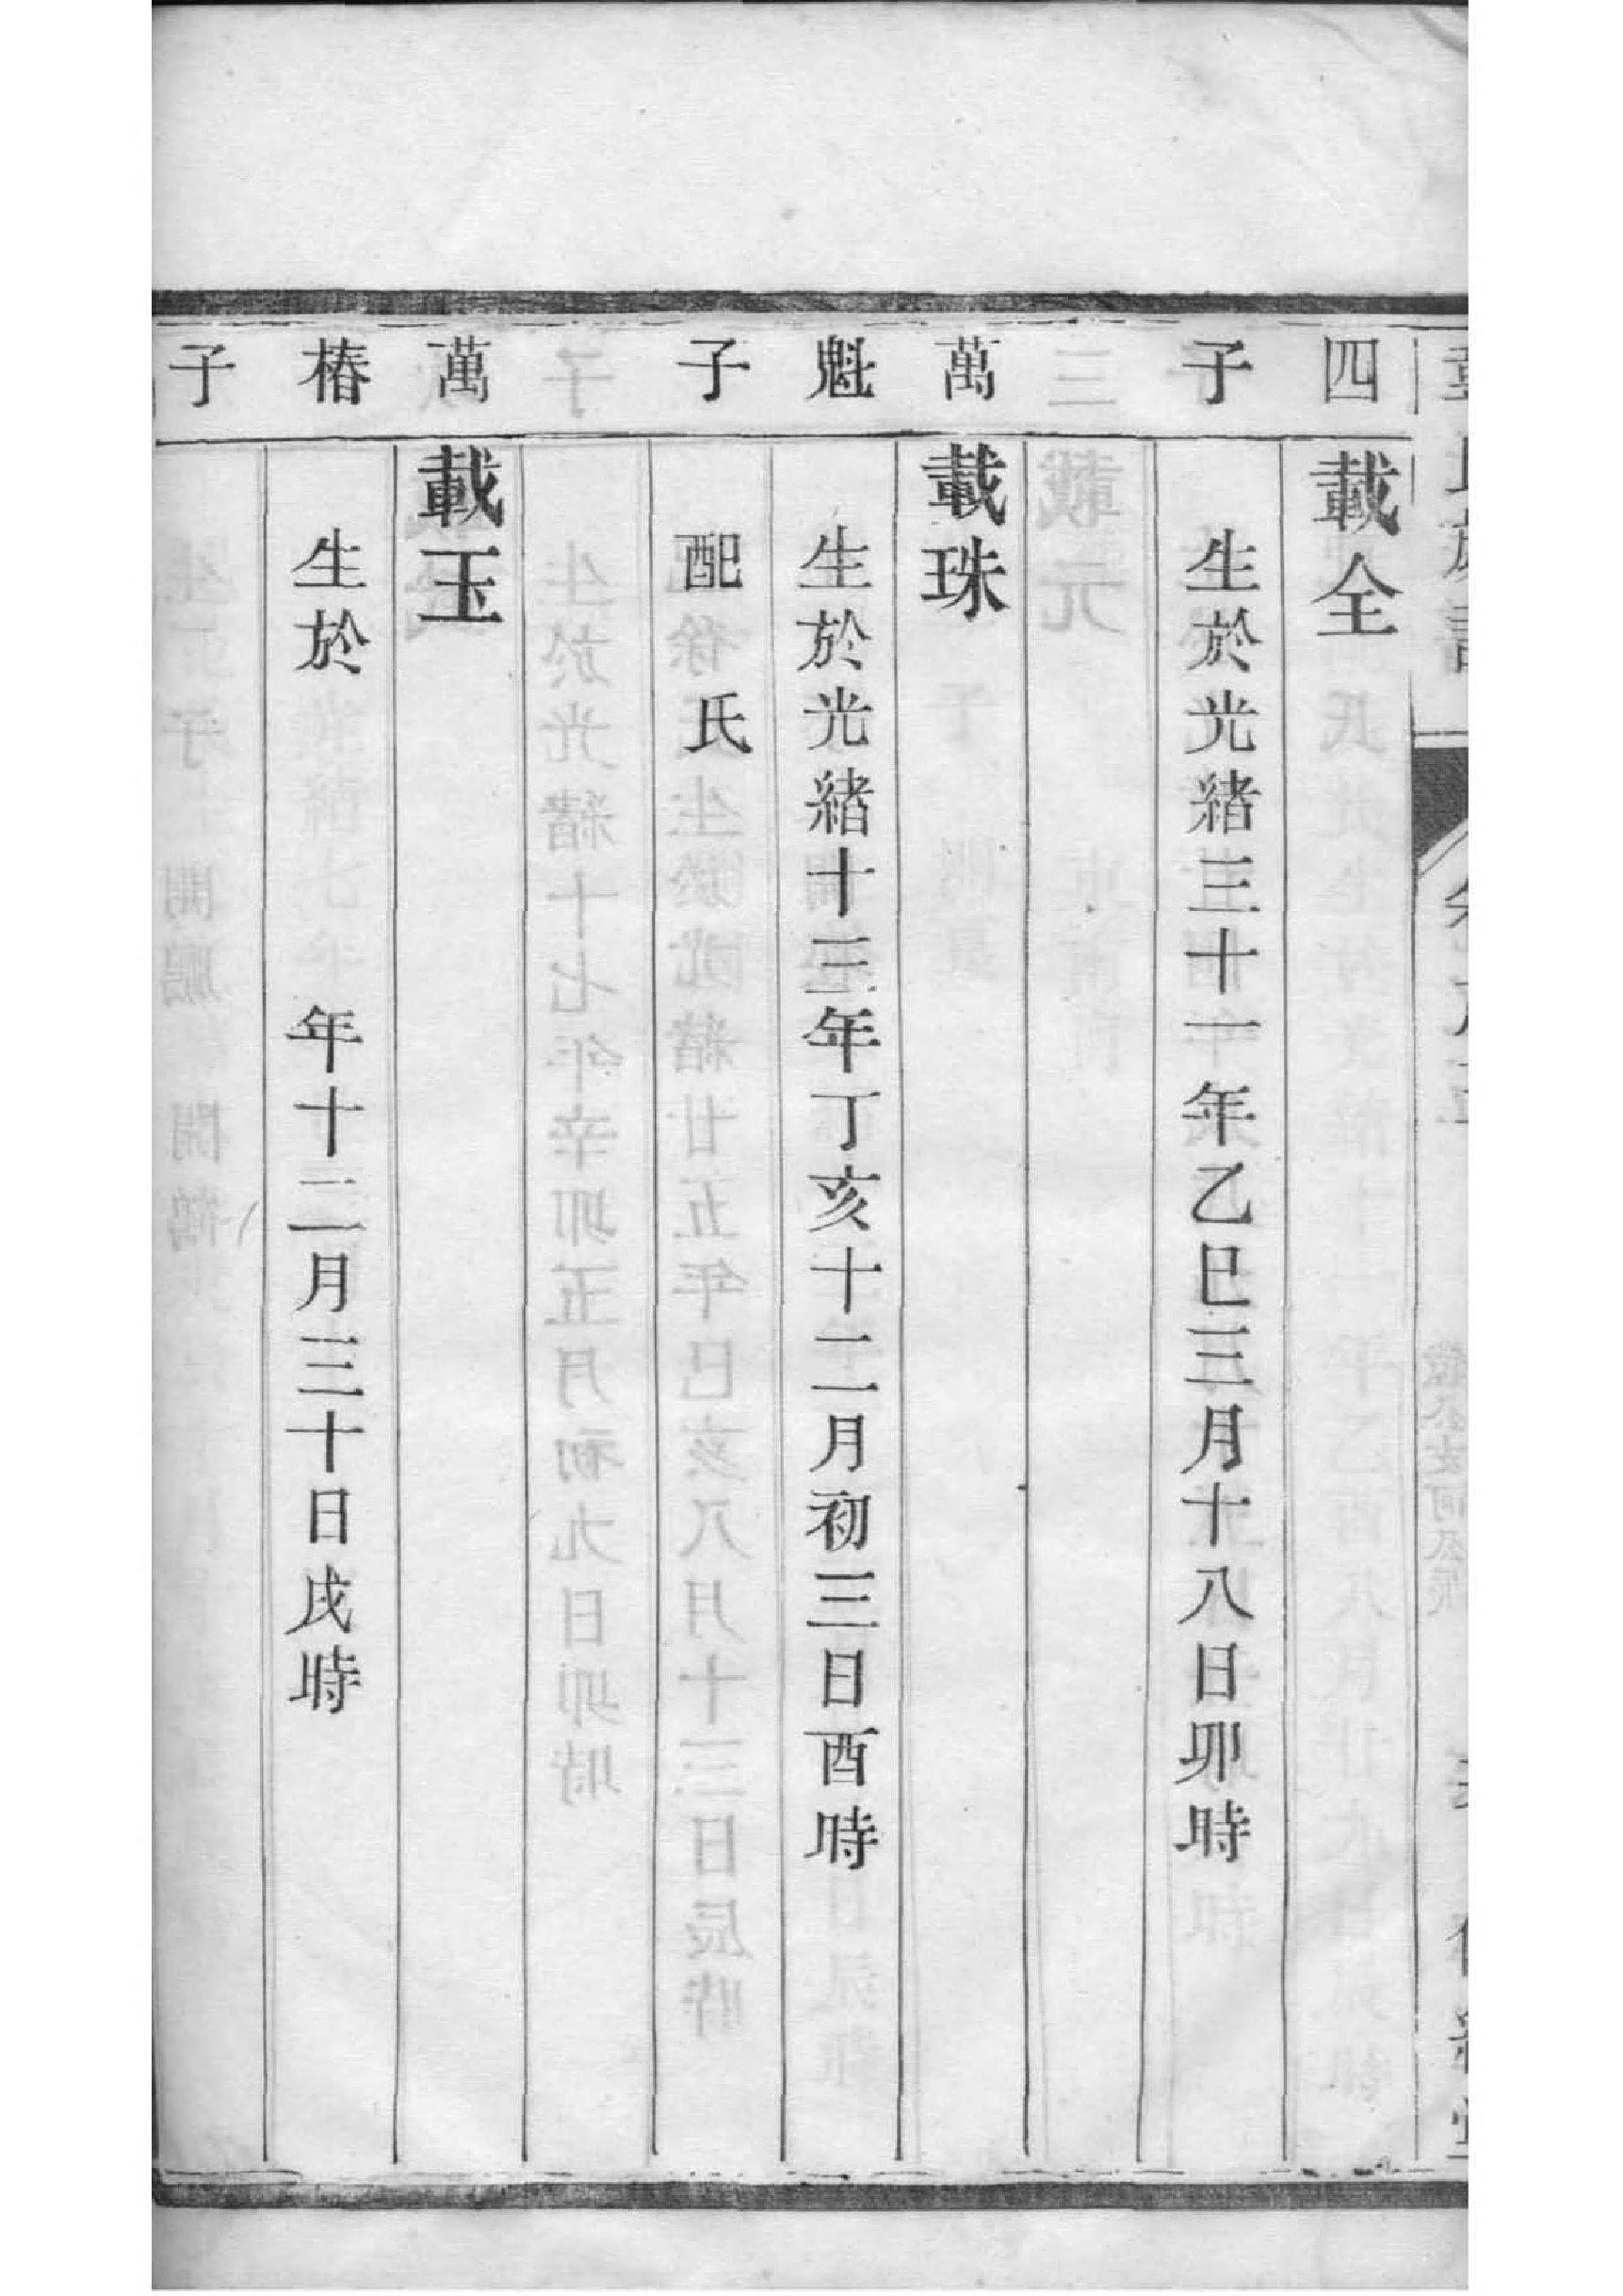 四 載全
子 生於光緒三十一年乙巳三月十八日卯時
萬 載珠
魁 生於光緒十三年丁亥十二月初三日酉時
子 配 氏
萬 載玉
椿 生於 年十二月三十日戌時
子